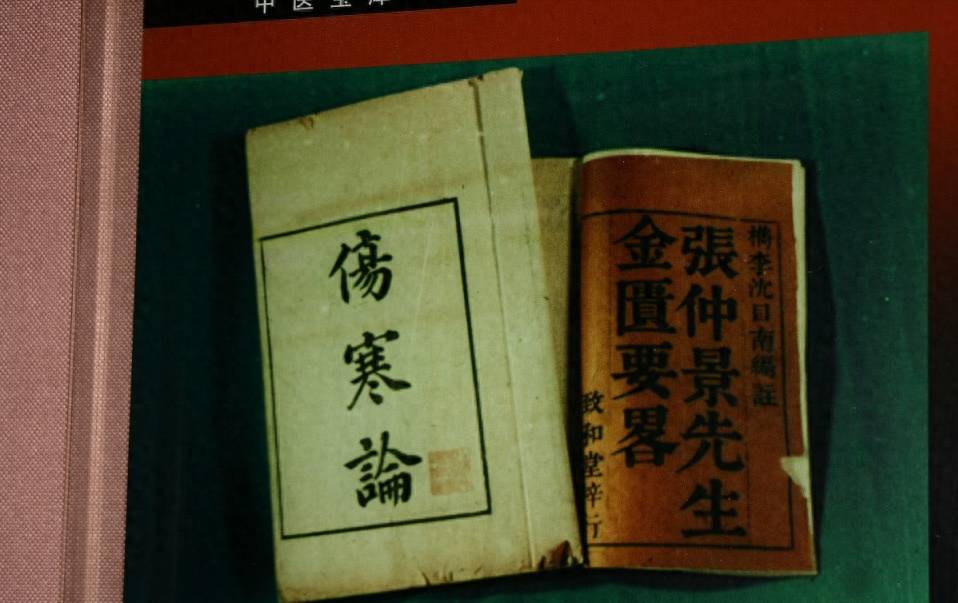 中医宝库
傷寒論
檇李沈目南編註
張仲景先生
金匱要畧
致和堂梓行